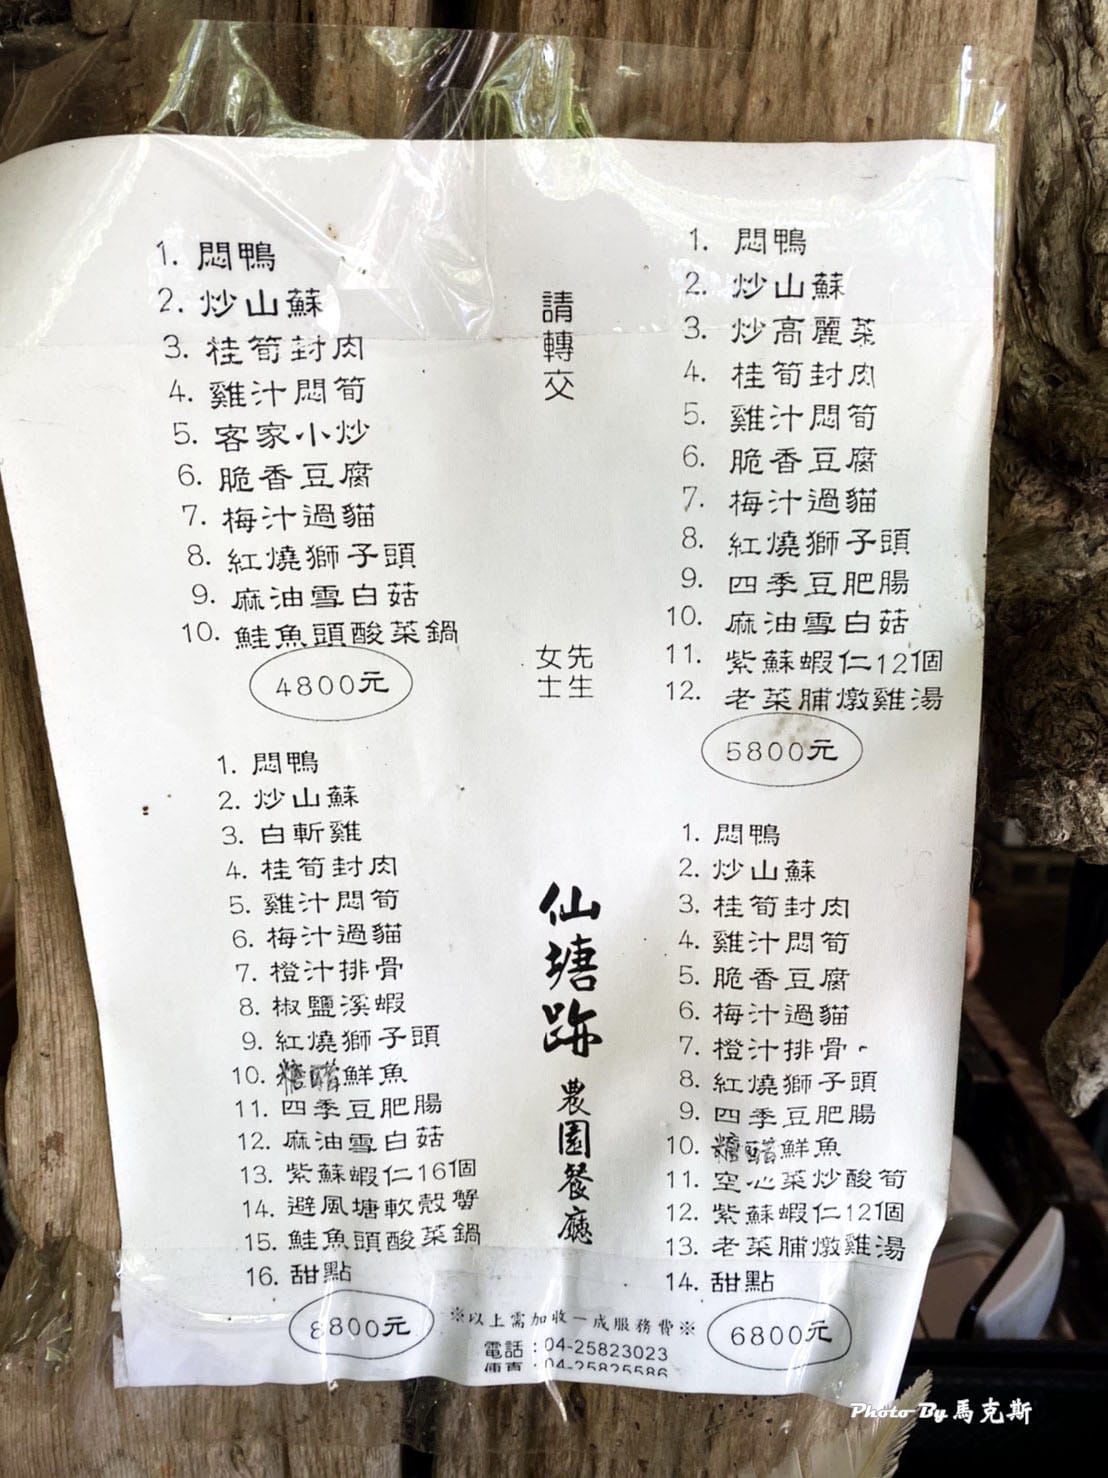 1. 悶鴨
2. 炒山蘇
3. 桂筍封肉
4. 雞汁悶筍
5. 客家小炒
6. 脆香豆腐
7. 梅汁過貓
8. 紅燒獅子頭
9. 麻油雪白菇
10. 鮭魚頭酸菜鍋
4800元
請轉交
先生
女士
1. 悶鴨
2. 炒山蘇
3. 炒高麗菜
4. 桂筍封肉
5. 雞汁悶筍
6. 脆香豆腐
7. 梅汁過貓
8. 紅燒獅子頭
9. 四季豆肥腸
10. 麻油雪白菇
11. 紫蘇蝦仁12個
12. 老菜脯燉雞湯
5800元
1. 悶鴨
2. 炒山蘇
3. 白斬雞
4. 桂筍封肉
5. 雞汁悶筍
6. 梅汁過貓
7. 橙汁排骨
8. 椒鹽溪蝦
9. 紅燒獅子頭
10. 糖醋鮮魚
11. 四季豆肥腸
12. 麻油雪白菇
13. 紫蘇蝦仁16個
14. 避風塘軟殼蟹
15. 鮭魚頭酸菜鍋
16. 甜點
8800元
仙塘跡
農園餐廳
1. 悶鴨
2. 炒山蘇
3. 桂筍封肉
4. 雞汁悶筍
5. 脆香豆腐
6. 梅汁過貓
7. 橙汁排骨
8. 紅燒獅子頭
9. 四季豆肥腸
10. 糖醋鮮魚
11. 空心菜炒酸筍
12. 紫蘇蝦仁12個
13. 老菜脯燉雞湯
14. 甜點
6800元
※以上需加收一成服務費※
電話：04-25823023
傳真：04-25825586
Photo By 馬克斯